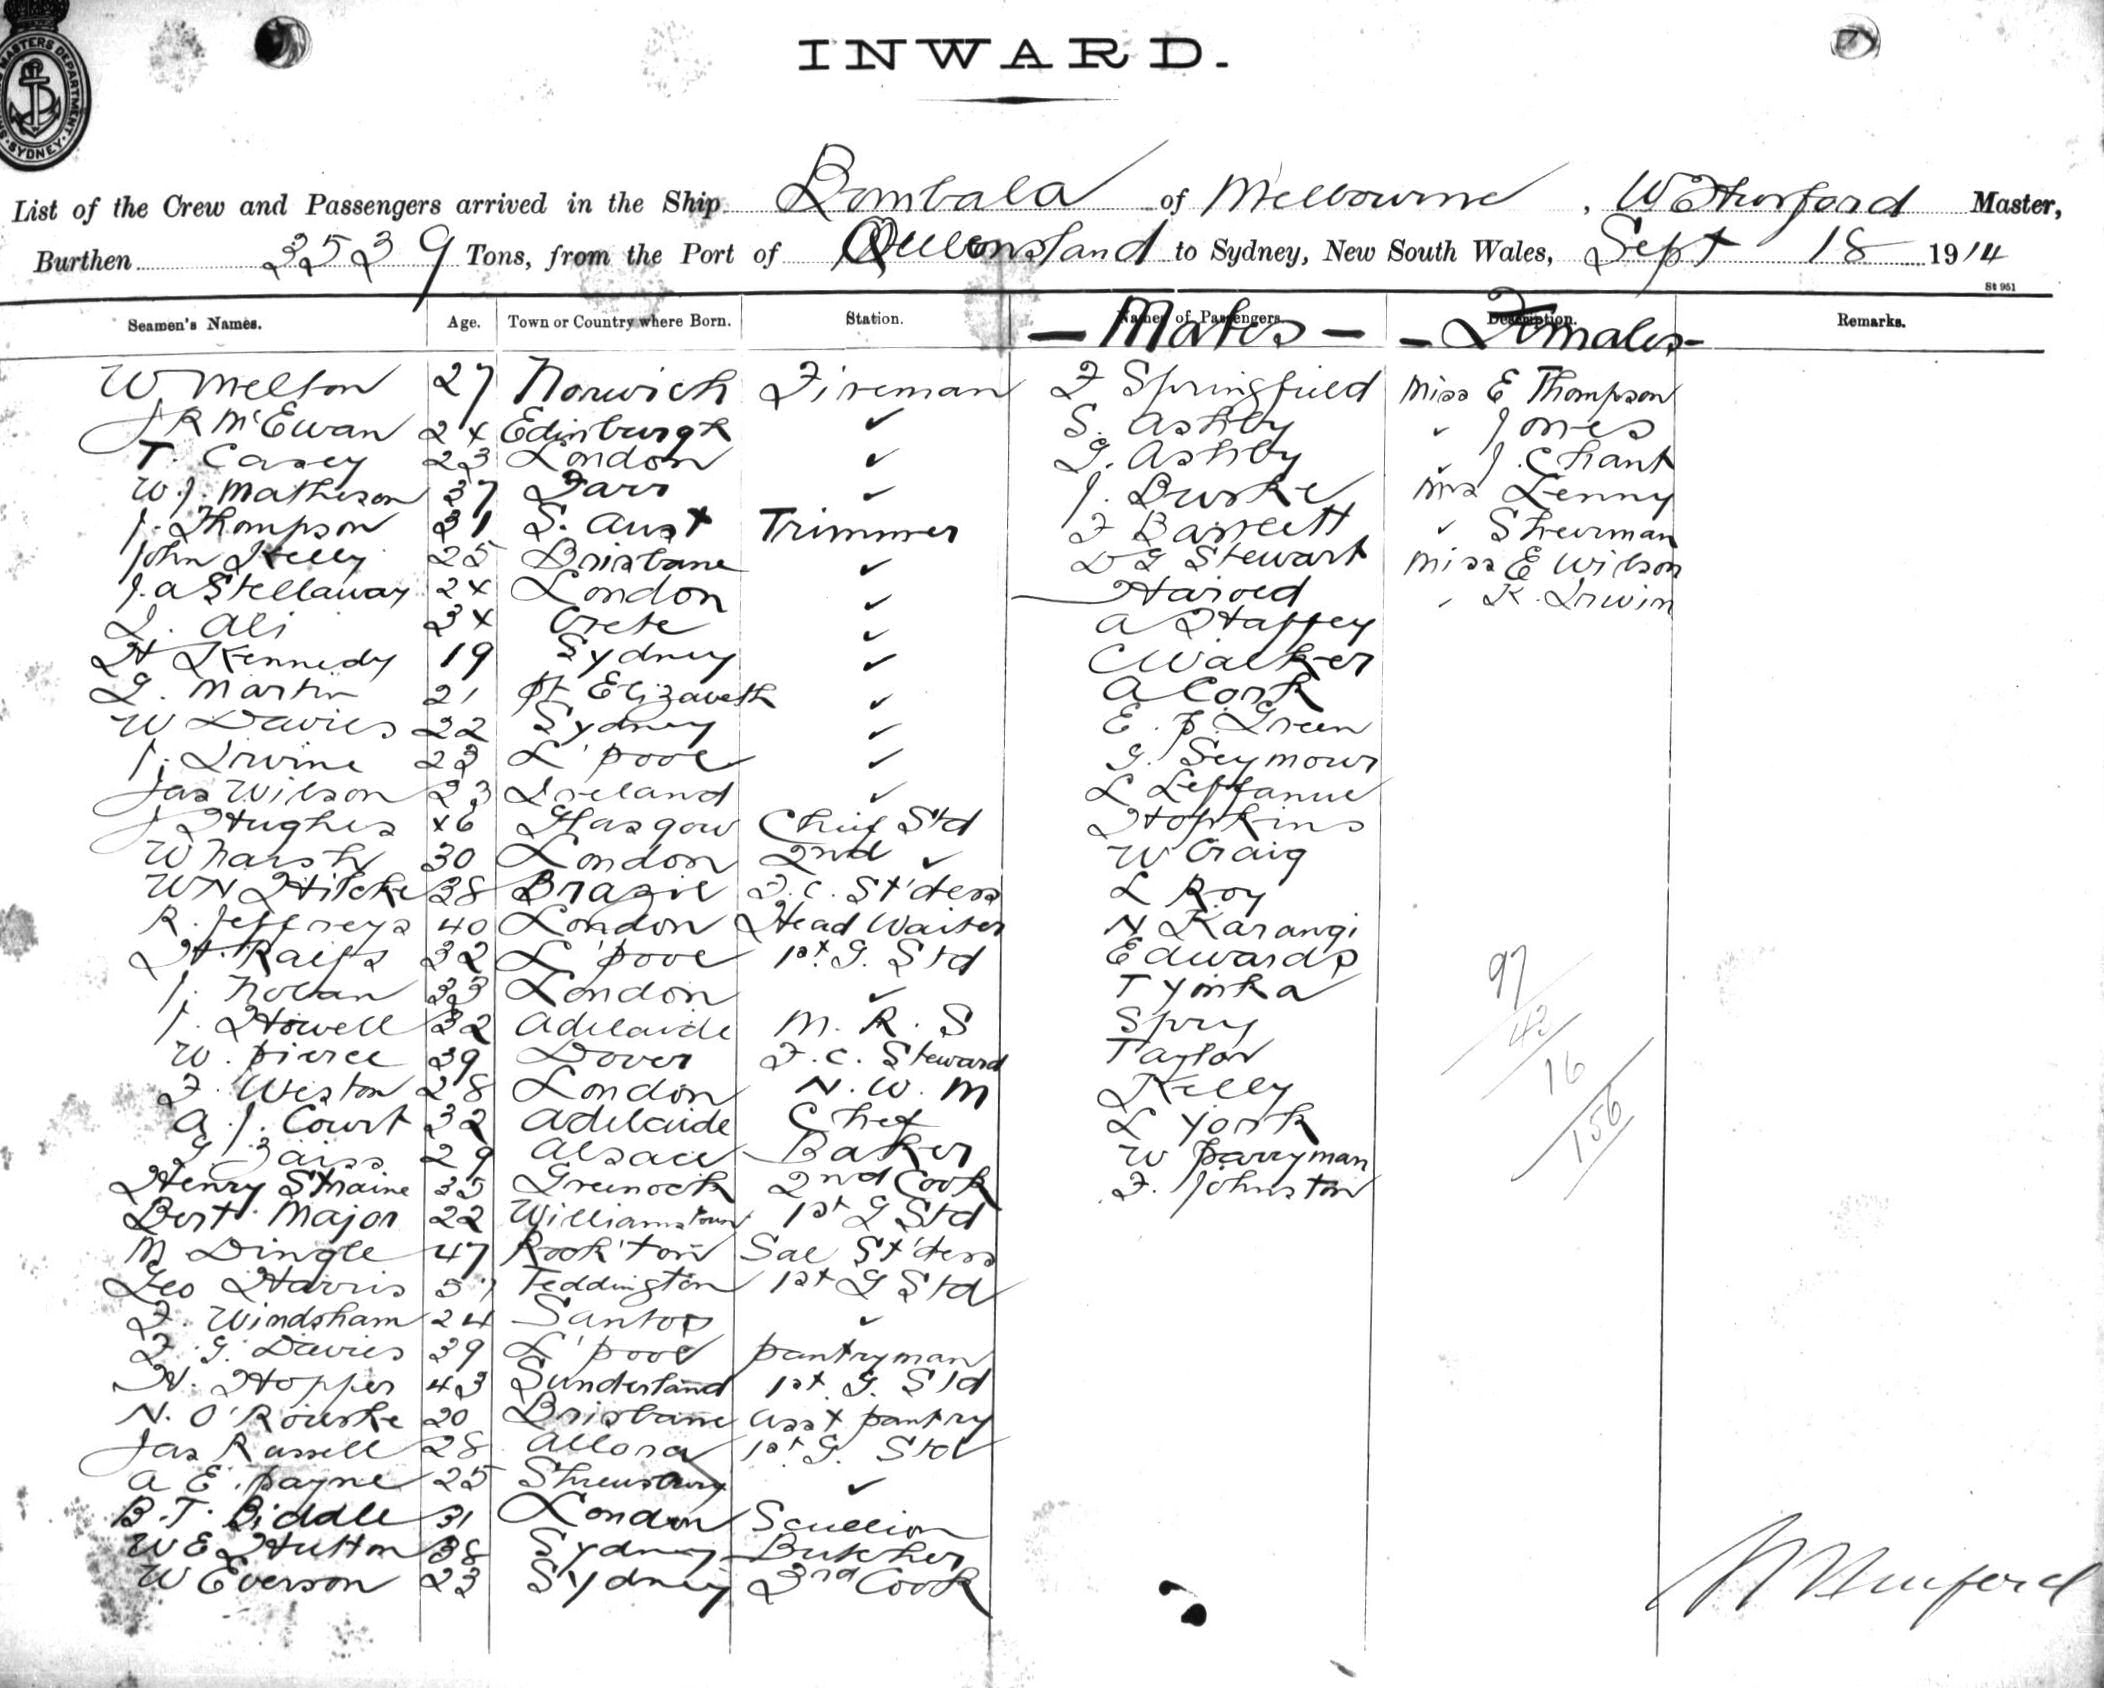 SHIPPING MASTERS DEPARTMENT · SYDNEY ·
INWARD.
List of the Crew and Passengers arrived in the Ship Bombala of Melbourne, W Thurford Master,
Burthen 3539 Tons, from the Port of Queensland to Sydney, New South Wales, Sept 18 1914
St 961
Seamen's Names. Age. Town or Country where Born. Station. Names of Passengers — Males — Description. - Females - Remarks.
W Melton 27 Norwich Fireman F Springfield Miss E Thompson
J R McEwan 24 Edinburgh ✓ S. Ashby ✓ Jones
T. Casey 23 London ✓ G. Ashby ✓ J. Chant
W. J. Matheson 37 Farr ✓ J. Burke Mrs Lenny
J. Thompson 31 S. Aust Trimmer F Barrett ✓ Shearman
John Kelly 25 Brisbane ✓ D G Stewart Miss E Wilson
J. A Stellaway 24 London ✓ Harold K. Irwin
J. Ali 34 Crete ✓ A Haffey
H Kennedy 19 Sydney ✓ C Walker
G. Martin 21 Pt Elizabeth ✓ A Cork
W Davies 22 Sydney ✓ E. P. Green
J. Irvine 23 L'pool ✓ G. Seymour
Jas Wilson 23 Ireland ✓ L Leffanue
J Hughes 46 Glasgow Chief Std Hopkins
W Naish 30 London 2nd ✓ W Craig
W N Hitche 38 Brazil F. C. St'dess L Roy
R. Jeffreys 40 London Head Waiter N Karangi
H. Ralfs 32 L'pool 1st. G. Std Edwards
J. Nolan 33 London ✓ T Yonka
J. Howell 32 Adelaide M. R. S Spry
W. Pierce 39 Dover F. C. Steward Taylor
F. Weston 28 London N. W. M Kelly
A. J. Court 32 Adelaide Chef L York
G Baiss 29 Alsace Baker W Parryman
Henry Straine 35 Greenock 2nd Cook F. Johnston
Bert. Major 22 Williamstown 1st G Std
M Dingle 47 Rock'ton Sal St'dess
Geo Harris 57 Teddington 1st G Std
F. Windsham 24 Santos ✓
F. G. Davies 39 L'pool Pantryman
H. Hopper 43 Sunderland 1st. G. Std
N. O'Rourke 20 Brisbane Asst Pantry
Jas Russell 28 Allora 1st. G. Std
A E. Payne 25 Shrewsbury ✓
B. T. Biddle 31 London Scullion
W E Hutton 38 Sydney Butcher
W Everson 23 Sydney 3rd Cook
97
43
16
156